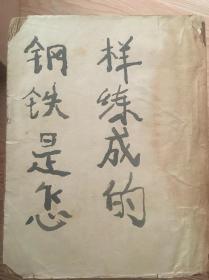 钢铁是怎
样练成的